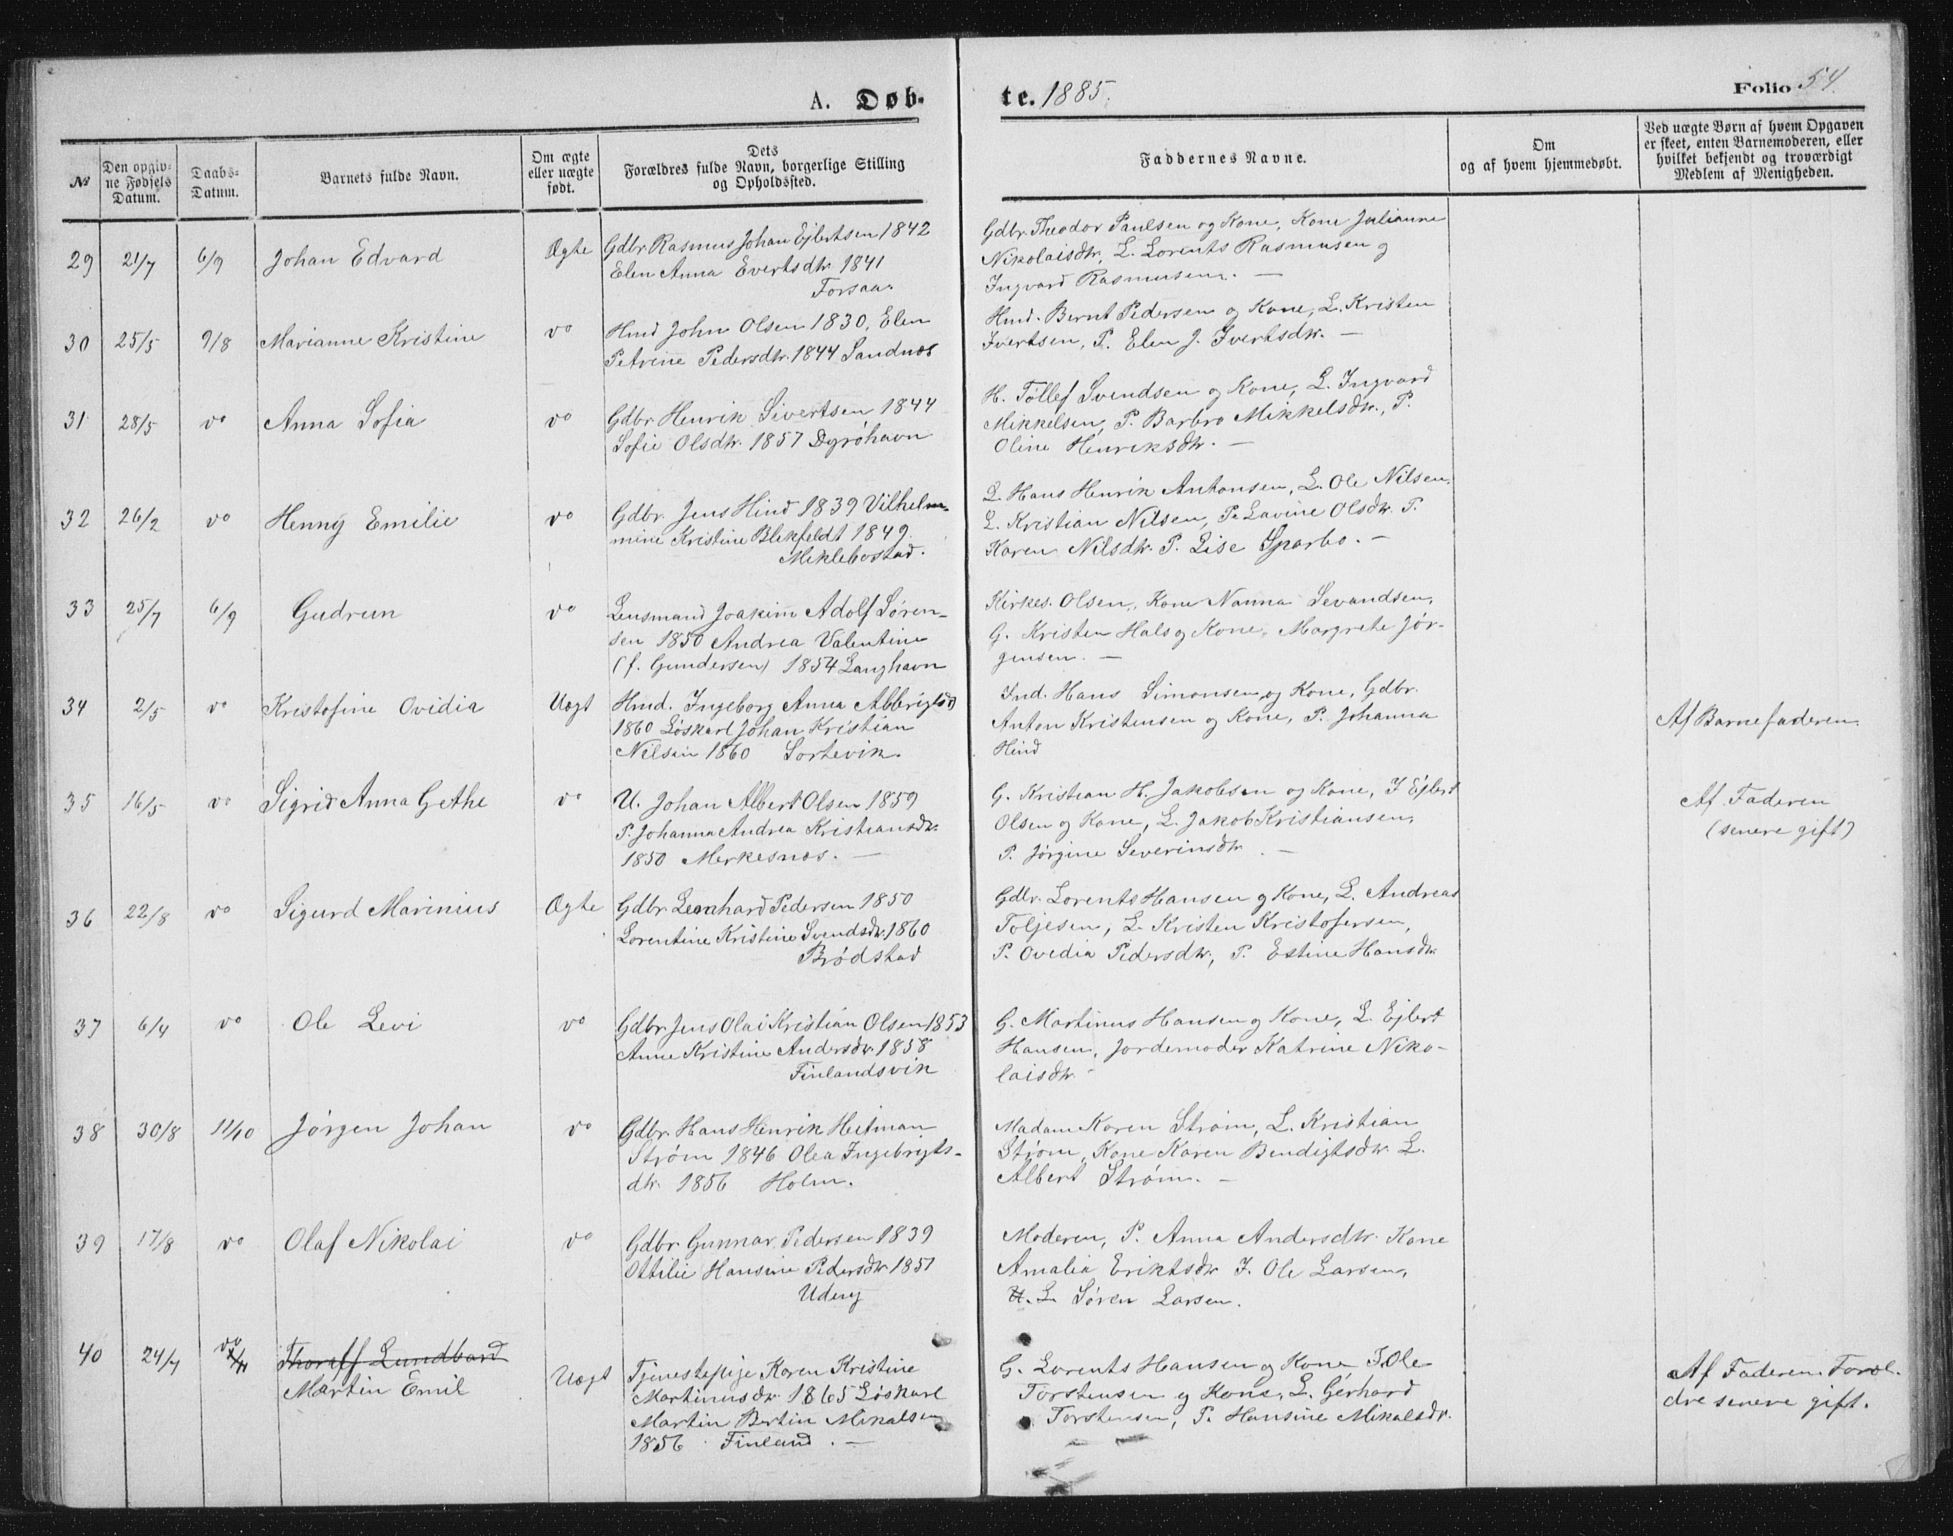 A. Døb-
te. 1885.
Folio 54.
№
Den opgiv-
ne Fødsels
Datum.
Daabs-
Datum.
Barnets fulde Navn.
Om ægte
eller uægte
født.
Dets
Forældres fulde Navn, borgerlige Stilling
og Opholdssted.
Faddernes Navne.
Om
og af hvem hjemmedøbt.
Ved uægte Børn af hvem Opgaven
er skeet, enten Barnemoderen, eller
hvilket bekjendt og troværdigt
Medlem af Menigheden.
29 21/7 6/9 Johan Edvard Ægte
Gdbr Rasmus Johan Ejlertsen 1842
Elen Anna Evertsdtr 1841
Forsaa.
Gdbr Theodor Paulsen og Kone, Kone Julianne
Nikolaisdtr, L. Lorents Rasmusen og
Ingvard Rasmusen. —
30 25/5 9/8 Marianne Kristine vo
Hmd John Olsen 1830, Elen
Petrine Pedersdtr. 1844 Sandnæs
Hmd. Bernt Pedersen og Kone, L. Kristen
Ivertsen, P. Elen J. Ivertsdtr. —
31 28/5 vo Anna Sofia vo
Gdbr Henrik Sivertsen 1844
Sofie Olsdtr. 1857 Dyröhavn
H. Töllef Svendsen og Kone, L. Ingvard
Mikkelsen, P. Barbro Mikkelsdtr., P.
Oline Henriksdtr. —
32 26/2 vo Henny Emilie vo
Gdbr. Jens Hind 1839 Vilhelm-
mine Kristine Blikfeldt 1849.
Miklebostad.
L. Hans Henrik Antonsen, L. Ole Nilsen.
L. Kristian Nilsen, P. Lavine Olsdtr. P.
Karen Nilsdtr. P. Lise Sparbo. —
33 25/7 6/9 Gudrun vo
Lensmand Joakim Adolf Søren-
sen 1850 Andrea Valentine
(f. Gundersen) 1854 Langhavn
Kirkes. Olsen, Kone Nanna Sevandsen,
G. Kristen Hals og Kone, Margrete Jør-
gensen. —
34 2/5 vo Kristofine Ovidia Uægt
Hmd. Ingeborg Anna Albrigtsd
1860 Løskarl Johan Kristian
Nilsen 1860 Sortevik.
Ind. Hans Simonsen og Kone, Gdbr.
Anton Kristensen og Kone, P. Johanna
Hind
Af Barnefaderen.
35 16/5 vo Sigrid Anna Gethe vo
U. Johan Albert Olsen 1859
P. Johanna Andrea Kristiansdtr.
1850 Merkesnæs. —
G. Kristian H. Jakobsen og Kone, I Ejlert
Olsen og Kone, L. Jakob Kristiansen,
P. Jørgine Severinsdtr. —
Af Faderen
(senere gift)
36 22/8 vo Sigurd Marinius Ægte
Gdbr Leonhard Pedersen 1850
Lorentine Kristine Svendsdtr. 1860
Brødstad
Gdbr. Lorents Hansen og Kone, L. Andreas
Toljesen, L. Kristen Kristofersen,
P. Ovidia Pedersdtr, P. Estine Hansdtr
37 6/4 vo Ole Levi vo
Gdbr Jens Olai Kristian Olsen 1853
Anne Kristine Andersdtr. 1858
Finlandsvik
G. Martinus Hansen og Kone, L. Ejlert
Hansen, Jordemoder Katrine Niko-
laisdtr.
38 30/8 11/10 Jørgen Johan vo
Gdbr. Hans Henrik Heitman
Strøm 1846 Olea Ingebrigts-
dtr. 1856 Holm.
Madam Karen Strøm, L. Kristian
Strøm, Kone Karen Bendigtsdtr. L.
Albert Strøm. —
39 17/8 vo Olaf Nikolai vo
Gdbr. Gunnar Pedersen 1839
Ottilie Hansine Pedersdtr 1851
Uderg
Moderen, P. Anna Andersdtr. Kone
Amalia Eriktsdtr I. Ole Larsen,
U. L. Søren Larsen.
40 24/7 vo 1/11 Thoralf Lundbard
Martin Emil Uægt
Tjenestepige Karen Kristine
Martinusdtr 1865 Løskarl
Martin Bertin Mikalsen
1856 Finland. —
G. Lorents Hansen og Kone I. Ole
Torstensen og Kone, L. Gerhard
Torstensen, P. Hansine Mikalsdtr.
Af Faderen Foræl-
dre senere gift.